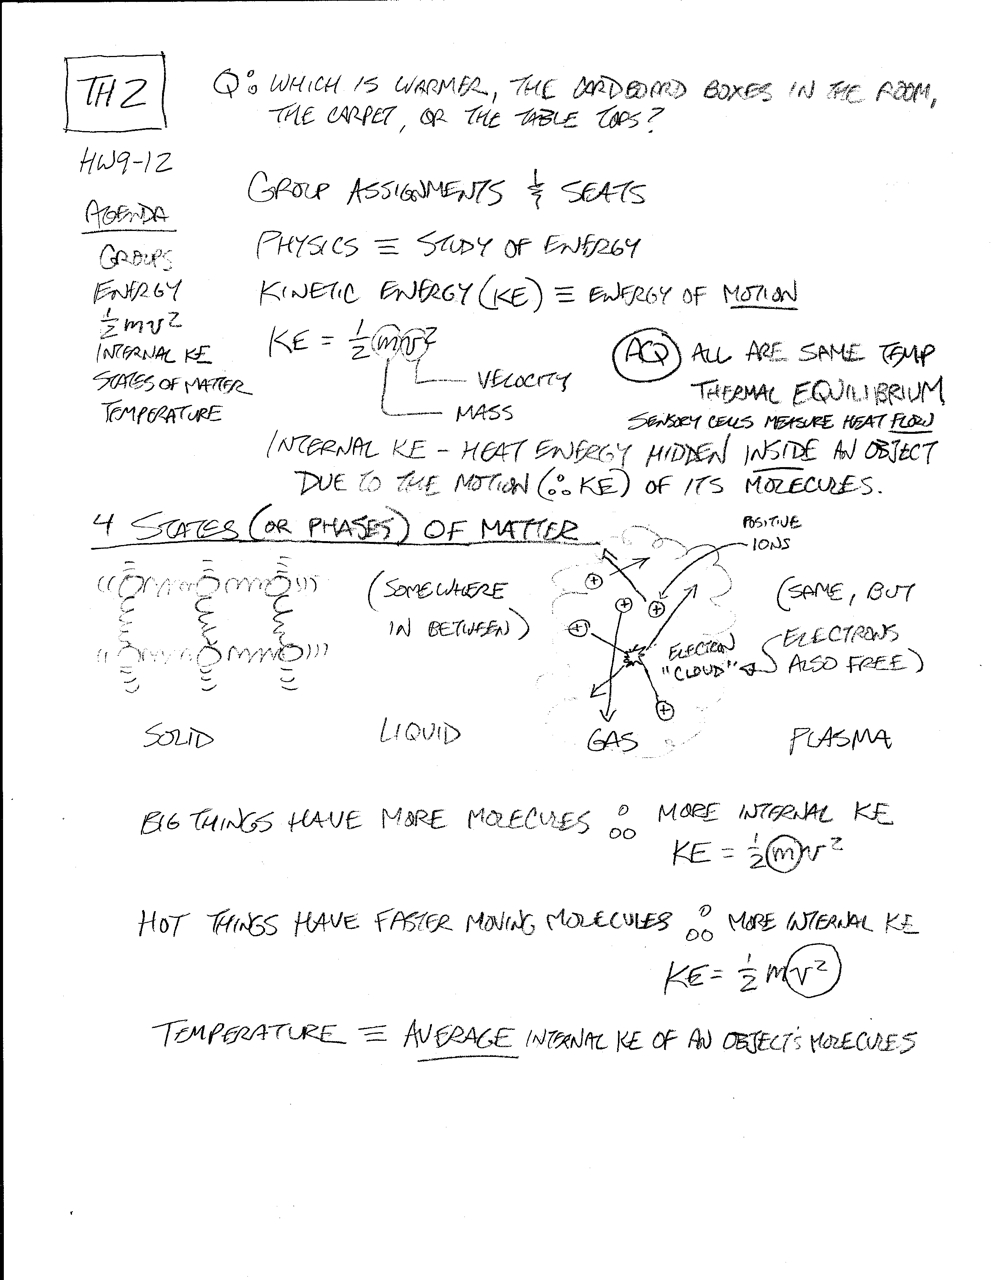 TH2
Q: WHICH IS WARMER, THE CARDBOARD BOXES IN THE ROOM,
THE CARPET, OR THE TABLE TOPS?
HW9-12
AGENDA
GROUPS
ENERGY
½mv²
INTERNAL KE
STATES OF MATTER
TEMPERATURE
GROUP ASSIGNMENTS & SEATS
PHYSICS ≡ STUDY OF ENERGY
KINETIC ENERGY (KE) ≡ ENERGY OF MOTION
KE = ½mv²
VELOCITY
MASS
ACQ ALL ARE SAME TEMP
THERMAL EQUILIBRIUM
SENSORY CELLS MEASURE HEAT FLOW
INTERNAL KE - HEAT ENERGY HIDDEN INSIDE AN OBJECT
DUE TO THE MOTION (∴ KE) OF ITS MOLECULES.
4 STATES (OR PHASES) OF MATTER
POSITIVE
IONS
(SOMEWHERE
IN BETWEEN)
(SAME, BUT
ELECTRONS
ALSO FREE)
ELECTRON
"CLOUD"
+
+
+
+
+
SOLID
LIQUID
GAS
PLASMA
BIG THINGS HAVE MORE MOLECULES ∴ MORE INTERNAL KE
KE = ½mv²
HOT THINGS HAVE FASTER MOVING MOLECULES ∴ MORE INTERNAL KE
KE = ½mv²
TEMPERATURE ≡ AVERAGE INTERNAL KE OF AN OBJECT'S MOLECULES